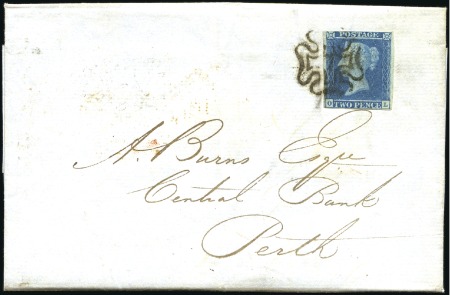 POSTAGE
TWO PENCE
L
A. Burns Esqre
Central Bank
Perth